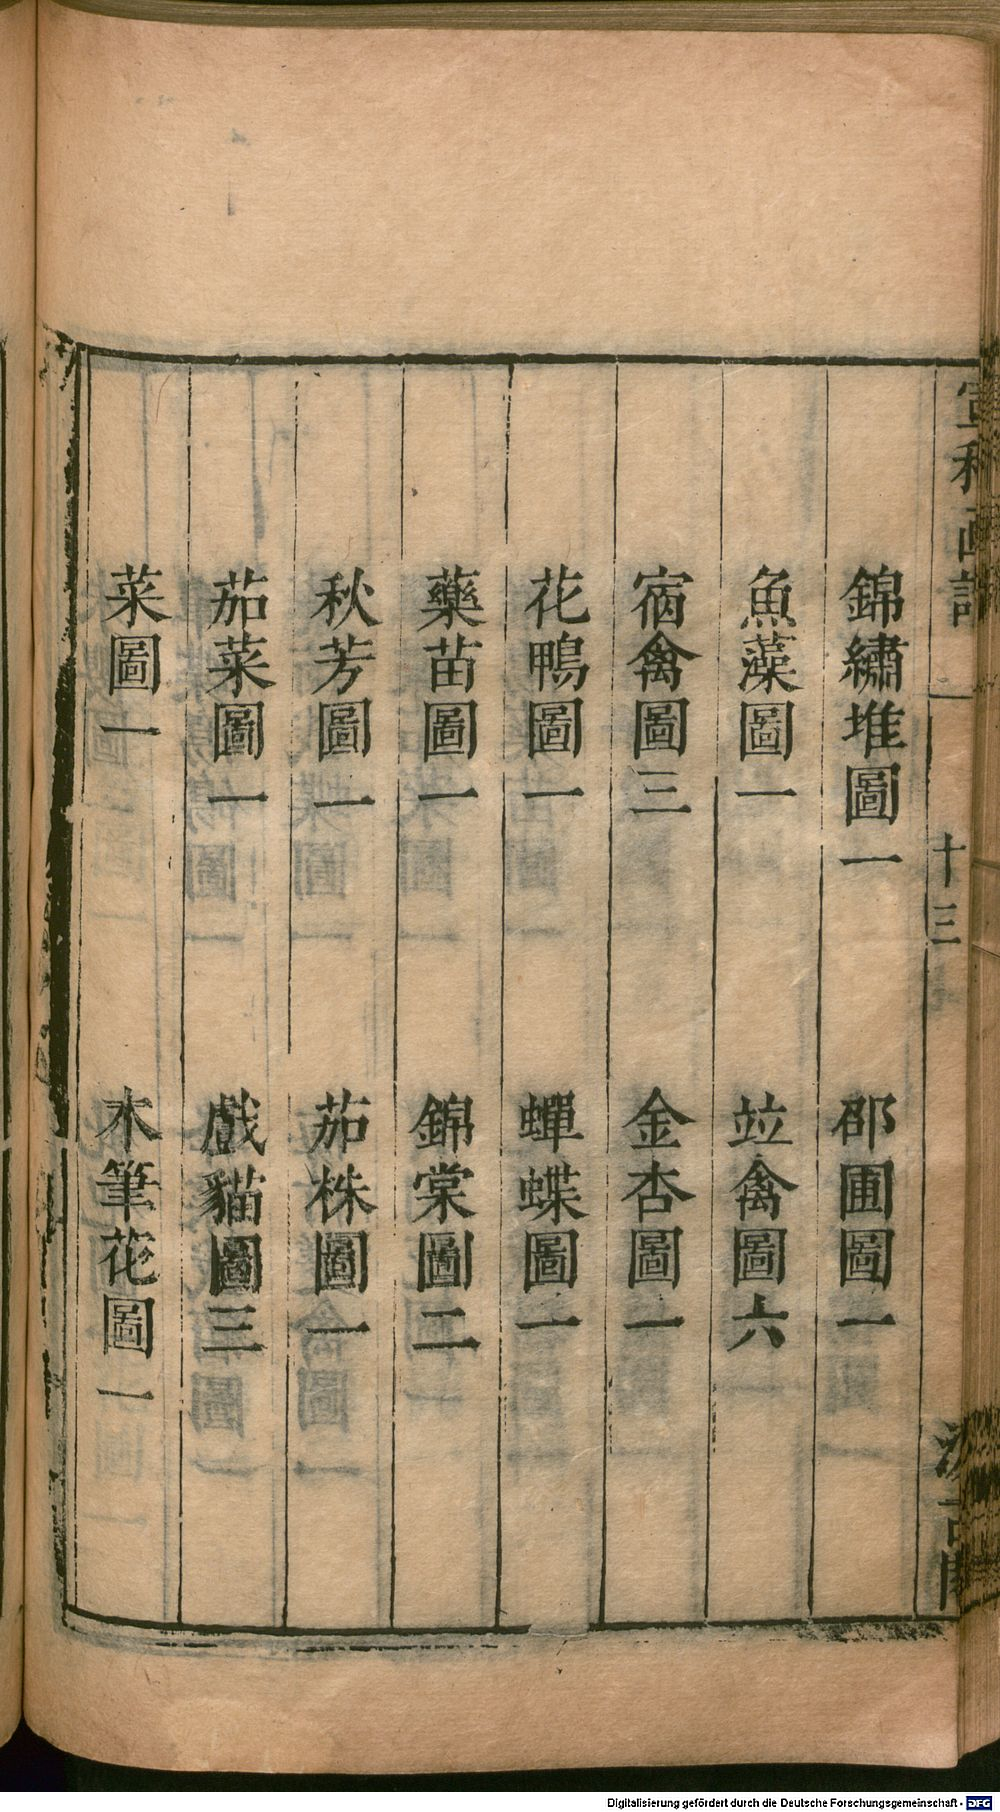 宣和画譜 十三 汲古閣
錦繡堆圖一 郡圃圖一
魚藻圖一 竝禽圖六
宿禽圖三 金杏圖一
花鴨圖一 蟬蝶圖一
藥苗圖一 錦棠圖二
秋芳圖一 茄株圖一
茄菜圖一 戲貓圖三
菜圖一 木筆花圖一
Digitalisierung gefördert durch die Deutsche Forschungsgemeinschaft - DFG